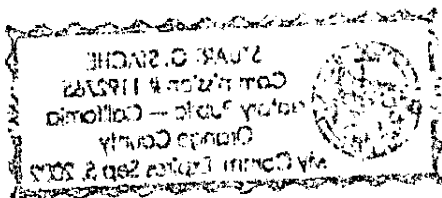 Commission # 1192765
Notary Public — California
Orange County
My Comm. Expires Sep 5, 2002